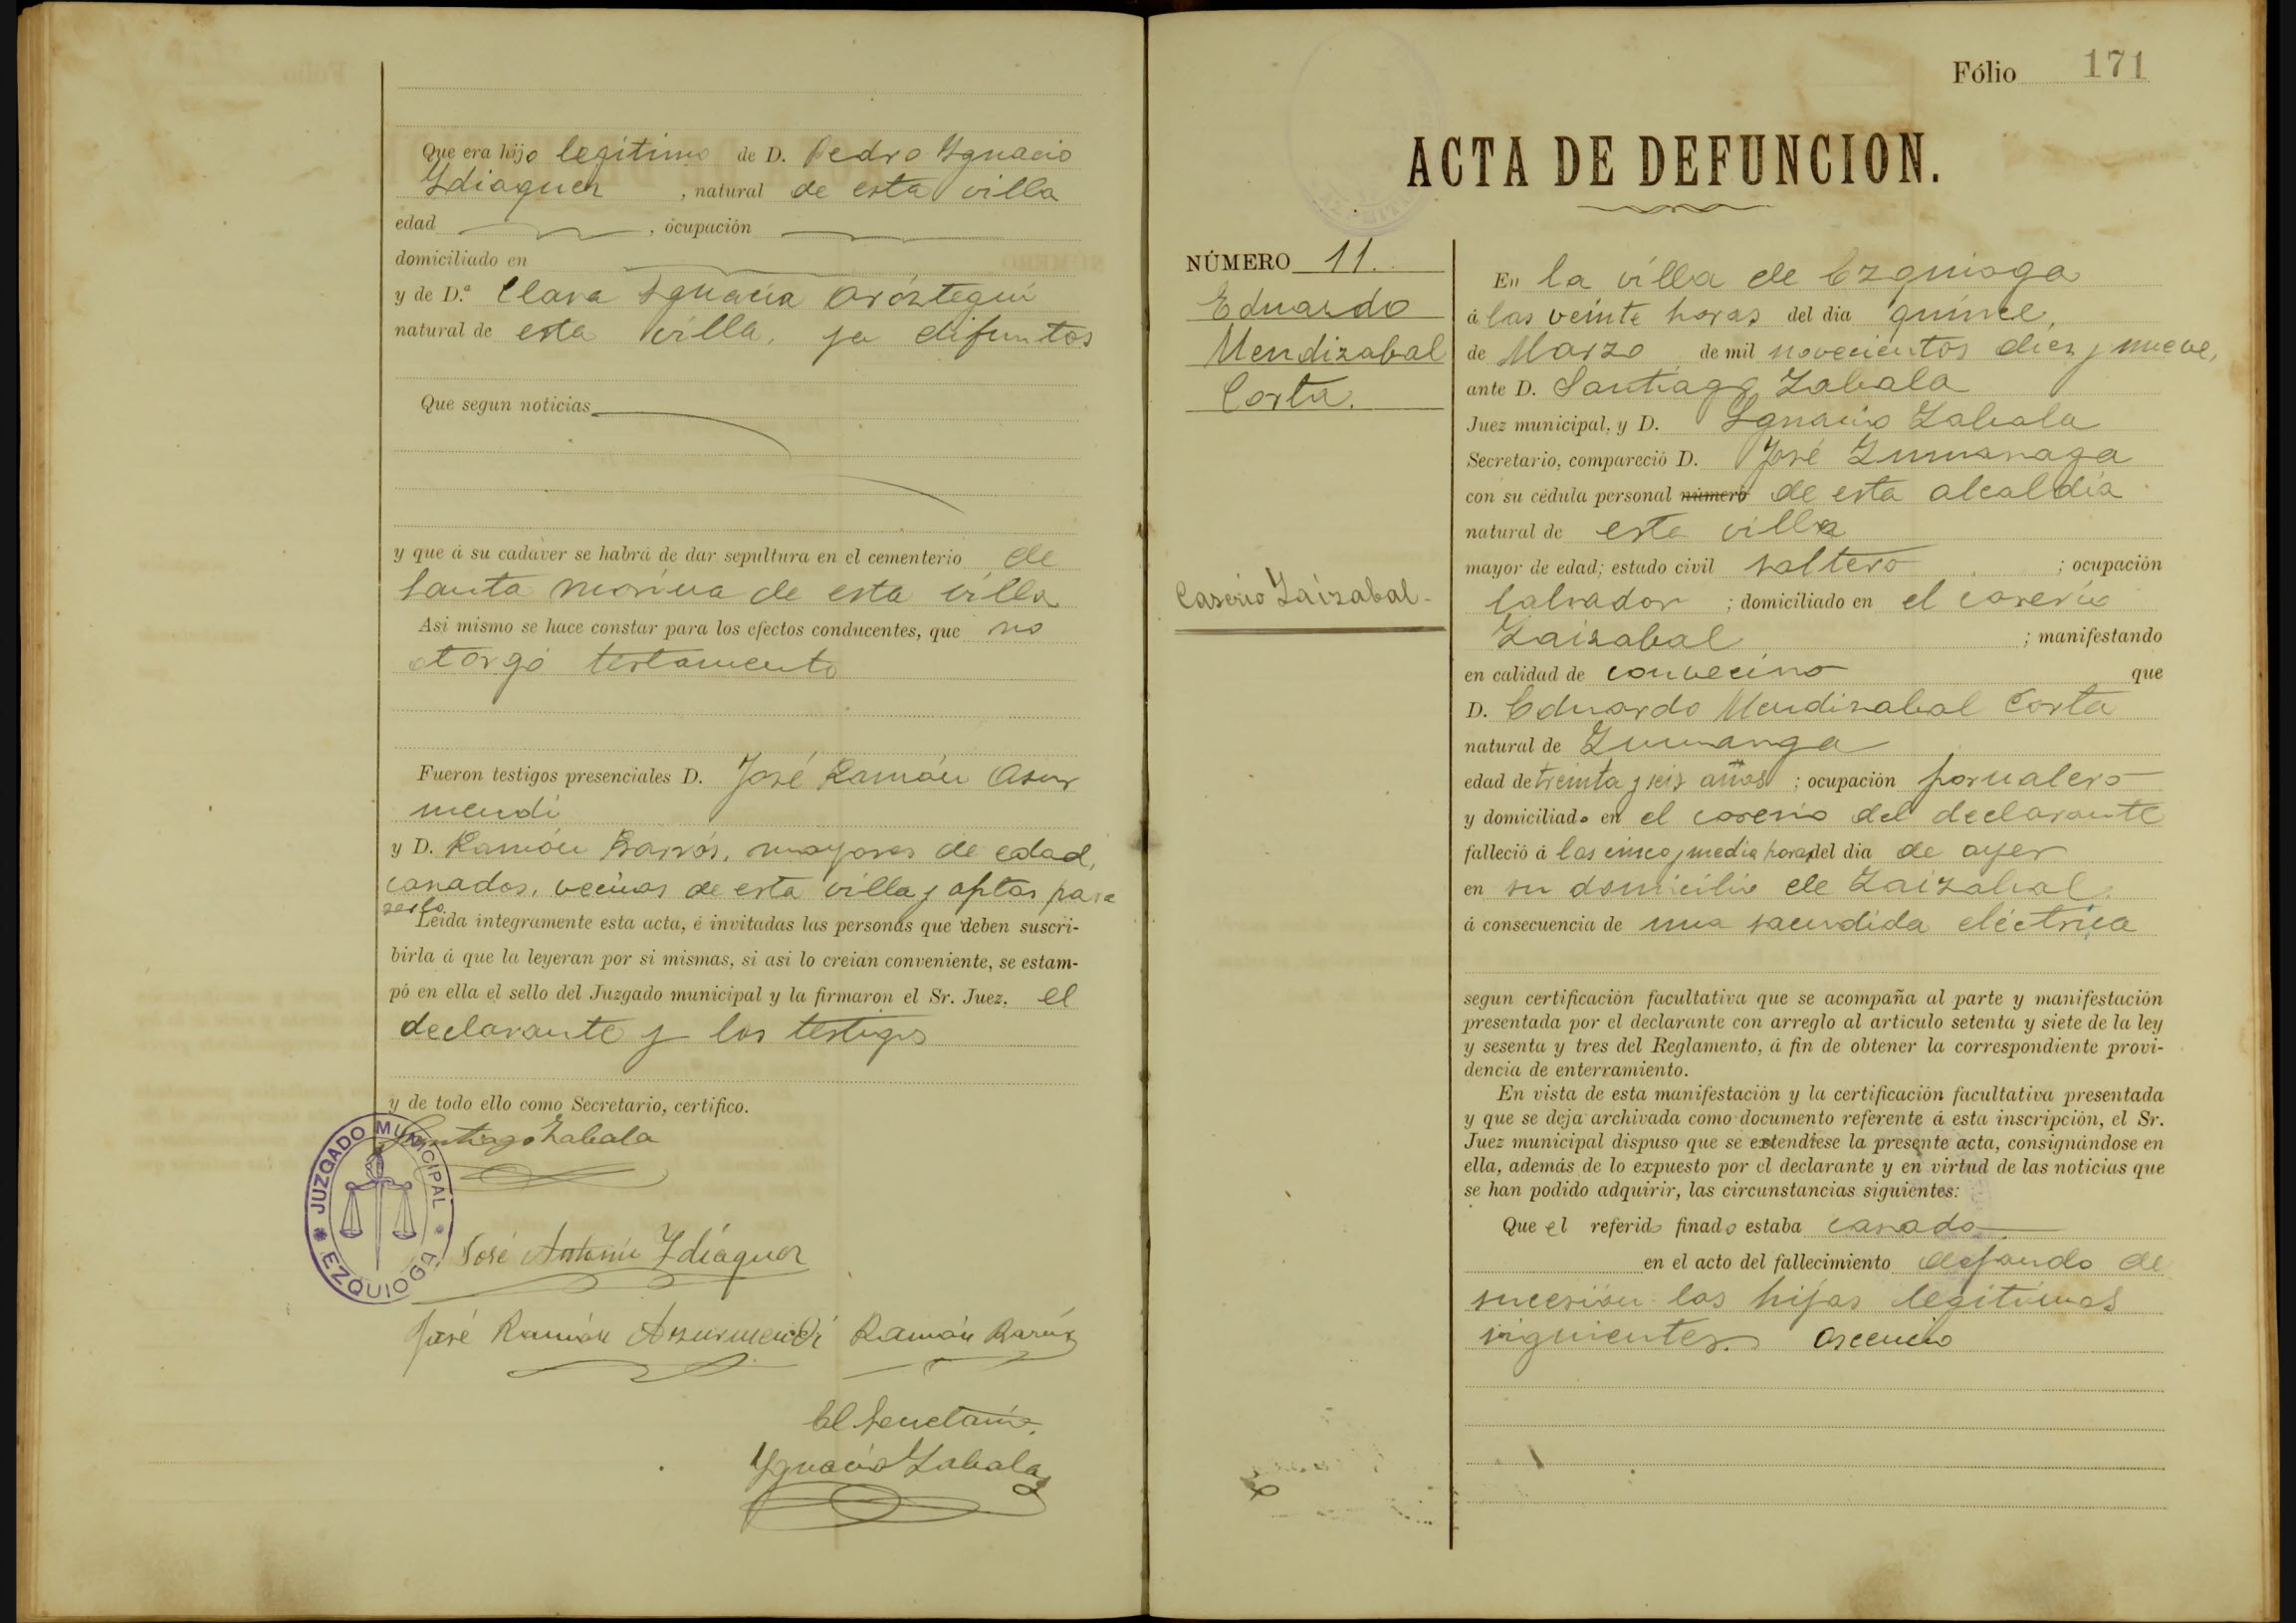 Que era hijo legitimo de D. Pedro Ygnacio
Ydiaquez , natural de esta villa
edad , ocupación
domiciliado en
y de D.ª Clara Ygnacia Aróztegui
natural de esta villa, ya difuntos
Que segun noticias
y que á su cadáver se habrá de dar sepultura en el cementerio de
Santa Marina de esta villa
Asi mismo se hace constar para los efectos conducentes, que no
otorgó testamento
Fueron testigos presenciales D. José Ramón Asur
mendi
y D. Ramón Barrós, mayores de edad,
casados, vecinos de esta villa y aptos para
serlo
Leida integramente esta acta, é invitadas las personas que deben suscri-
birla á que la leyeran por si mismas, si asi lo creian conveniente, se estam-
pó en ella el sello del Juzgado municipal y la firmaron el Sr. Juez. el
declarante y los testigos
y de todo ello como Secretario, certifico.
Santiago Zabala
JUZGADO MUNICIPAL
EZQUIOGA
José Antonio Ydiaquez
José Ramón Asurmendi Ramón Barrós
El Secretario,
Ygnacio Zabala
Fólio 171
ACTA DE DEFUNCION.
NÚMERO 11.
Eduardo
Mendizabal
Corta.
Caserio Zaizabal-
En la villa de Ezquioga
á las veinte horas del dia quince,
de Marzo de mil novecientos diez y nueve,
ante D. Santiago Zabala
Juez municipal, y D. Ygnacio Zabala
Secretario, compareció D. José Zumarraga
con su cédula personal número de esta alcaldía
natural de esta villa
mayor de edad; estado civil soltero ; ocupación
labrador ; domiciliado en el caserío
Zaizabal ; manifestando
en calidad de convecino que
D. Eduardo Mendizabal Corta
natural de
edad de treinta y seis años ; ocupación jornalero
y domiciliado en el caserío del declarante
falleció á las cinco y media horas del dia de ayer
en su domicilio de Zaizabal
á consecuencia de una sacudida eléctrica
segun certificación facultativa que se acompaña al parte y manifestación
presentada por el declarante con arreglo al articulo setenta y siete de la ley
y sesenta y tres del Reglamento, á fin de obtener la correspondiente provi-
dencia de enterramiento.
En vista de esta manifestación y la certificación facultativa presentada
y que se deja archivada como documento referente á esta inscripción, el Sr.
Juez municipal dispuso que se extendiese la presente acta, consignándose en
ella, además de lo expuesto por el declarante y en virtud de las noticias que
se han podido adquirir, las circunstancias siguientes:
Que el referido finado estaba casado
en el acto del fallecimiento dejando de
sucesión los hijos legítimos
siguientes.